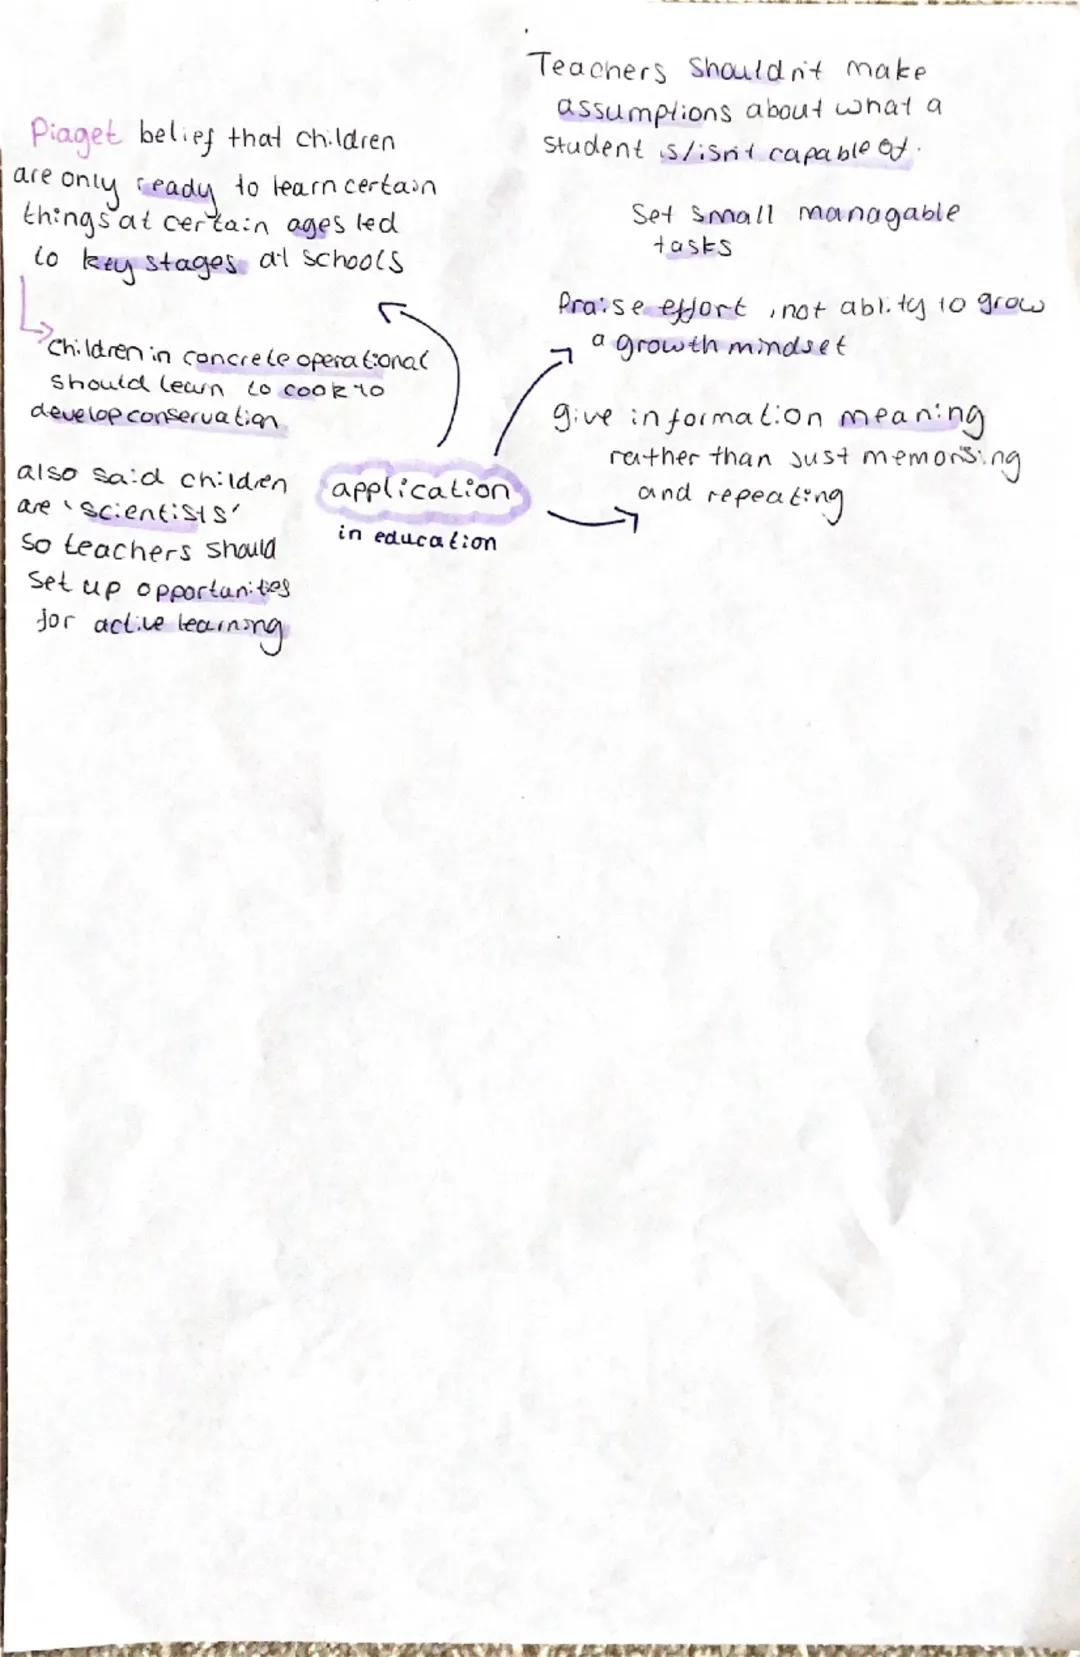 Piaget belief that children
are only ready to learn certain
things at certain ages led
to key stages at schools
children in concrete operational
should learn to cook to
develop conservation
also said children
are 'scientists'
so teachers should
set up opportunities
for active learning
application
in education
Teachers shouldn't make
assumptions about what a
student is/isn't capable of.
Set small managable
tasks
Praise effort, not ability to grow
a growth mindset
give information meaning
rather than just memorsing
and repeating